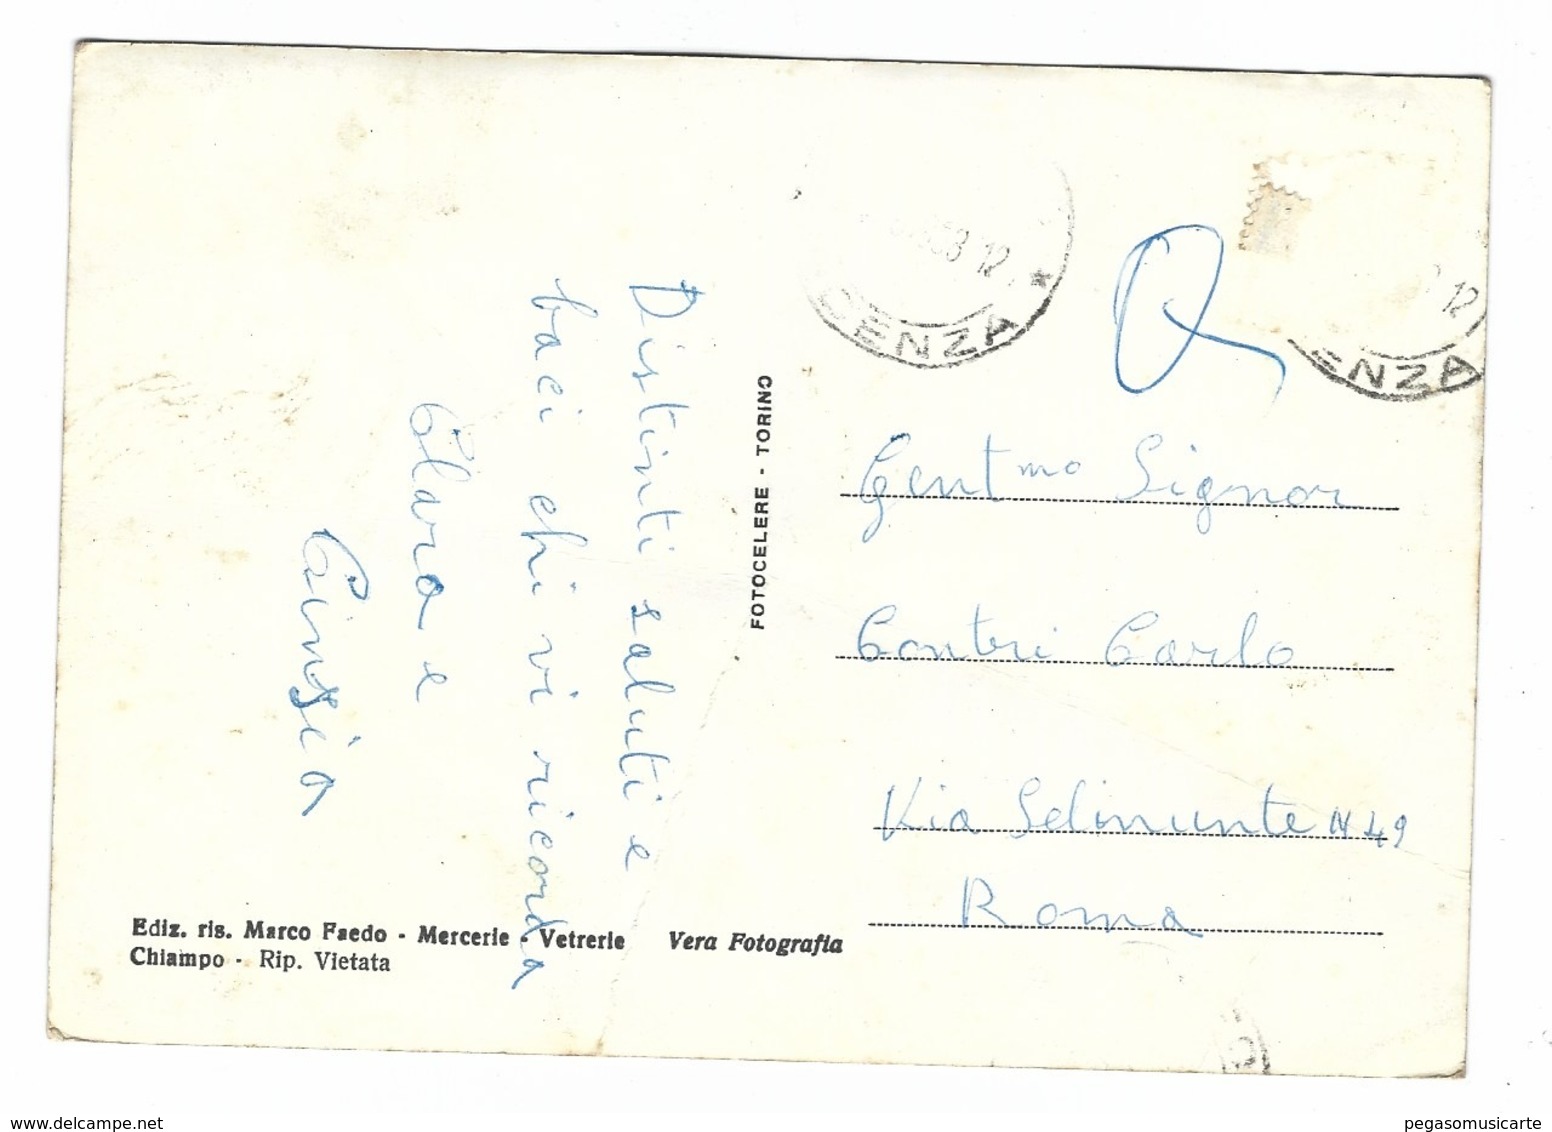 Distinti saluti e
baci chi vi ricorda
Clara e
Cinsia
FOTOCELERE - TORINO
ENZA
12
ENZA
12
Gent mo Signor
Conteri Carlo
Via Selinunte N 49
Roma
Ediz. ris. Marco Faedo - Mercerie - Vetrerie Vera Fotografia
Chiampo - Rip. Vietata
www.delcampe.net
pegasomusicarte